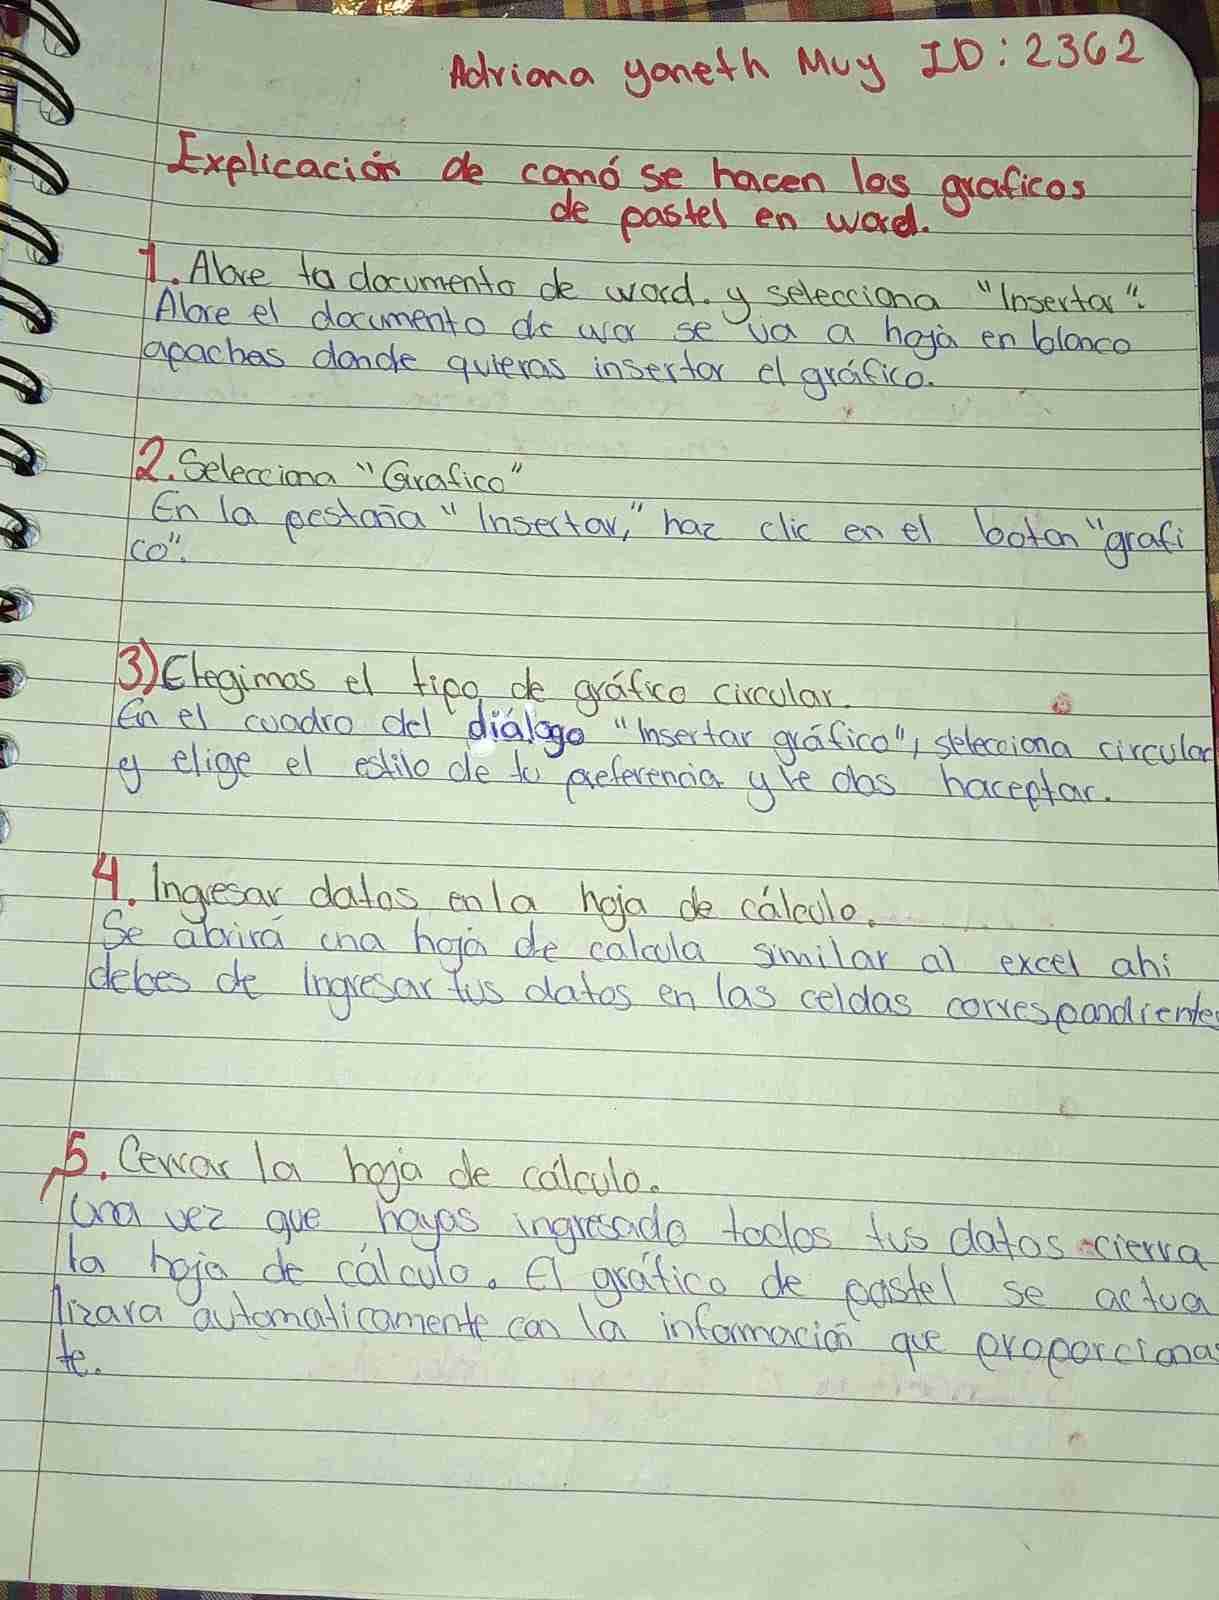 Adriana yaneth Muy ID: 2362
Explicación de comó se hacen los graficos
de pastel en word.
1. Abre tu documento de word. y selecciona "Insertar".
Abre el documento de wor se va a hoja en blanco
apachas donde quieras insertar el gráfico.
2. Selecciona "Grafico"
En la pestaña "Insertar," haz clic en el boton "grafi
co".
3) Elegimos el tipo de gráfico circular.
En el cuadro del diálogo "Insertar gráfico", selecciona circular
y elige el estilo de tu preferencia y le das haceptar.
4. Ingresar datos en la hoja de cálculo.
Se abrirá una hoja de calcula similar al excel ahi
debes de Ingresar tus datos en las celdas correspondientes
5. Cerrar la hoja de cálculo.
Una vez que hayas ingresado todos tus datos cierra
la hoja de cálculo. El gráfico de pastel se actua
lizara automaticamente con la información que proporcionas
te.